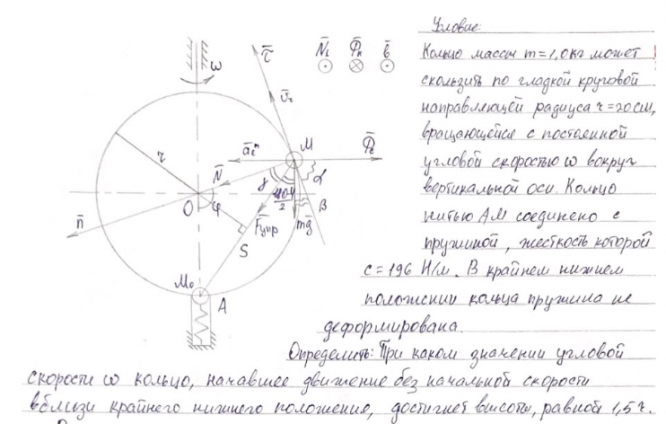 Условие:
Кольцо массы m=1,0кг может
скользить по гладкой круговой
направляющей радиуса r=20см,
вращающейся с постоянной
угловой скоростью ω вокруг
вертикальной оси. Кольцо
нитью AM соединено с
пружиной, жесткость которой
c=196 Н/м. В крайнем нижнем
положении кольца пружина не
деформирована.
Определить: При каком значении угловой
скорости ω кольцо, начавшее движение без начальной скорости
вблизи крайнего нижнего положения, достигнет высоты, равной 1,5 r.
ω
τ̄
N̄₁
b̄
r
M
N̄
γ
α
β
O
φ
F̄упр
mḡ
n̄
S
M₀
A